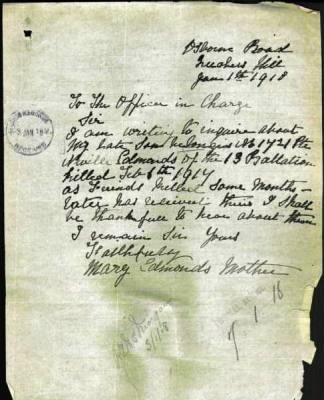 Osborne Road
Teachers Hill
Jan 1th 1918
To The Officer in Charge
Sir
I am writing to inquire about
My Late Son belongins No 1748 Pte
Neville Edmonds of the 13 Battalion
killed Feb 6th 1917
as Friends killed some months
later has recieved theirs I shall
be thankfull to hear about them
I remain Sir Yours
Faithfully
Mary Edmonds Mother
7.1.18
3/1/18